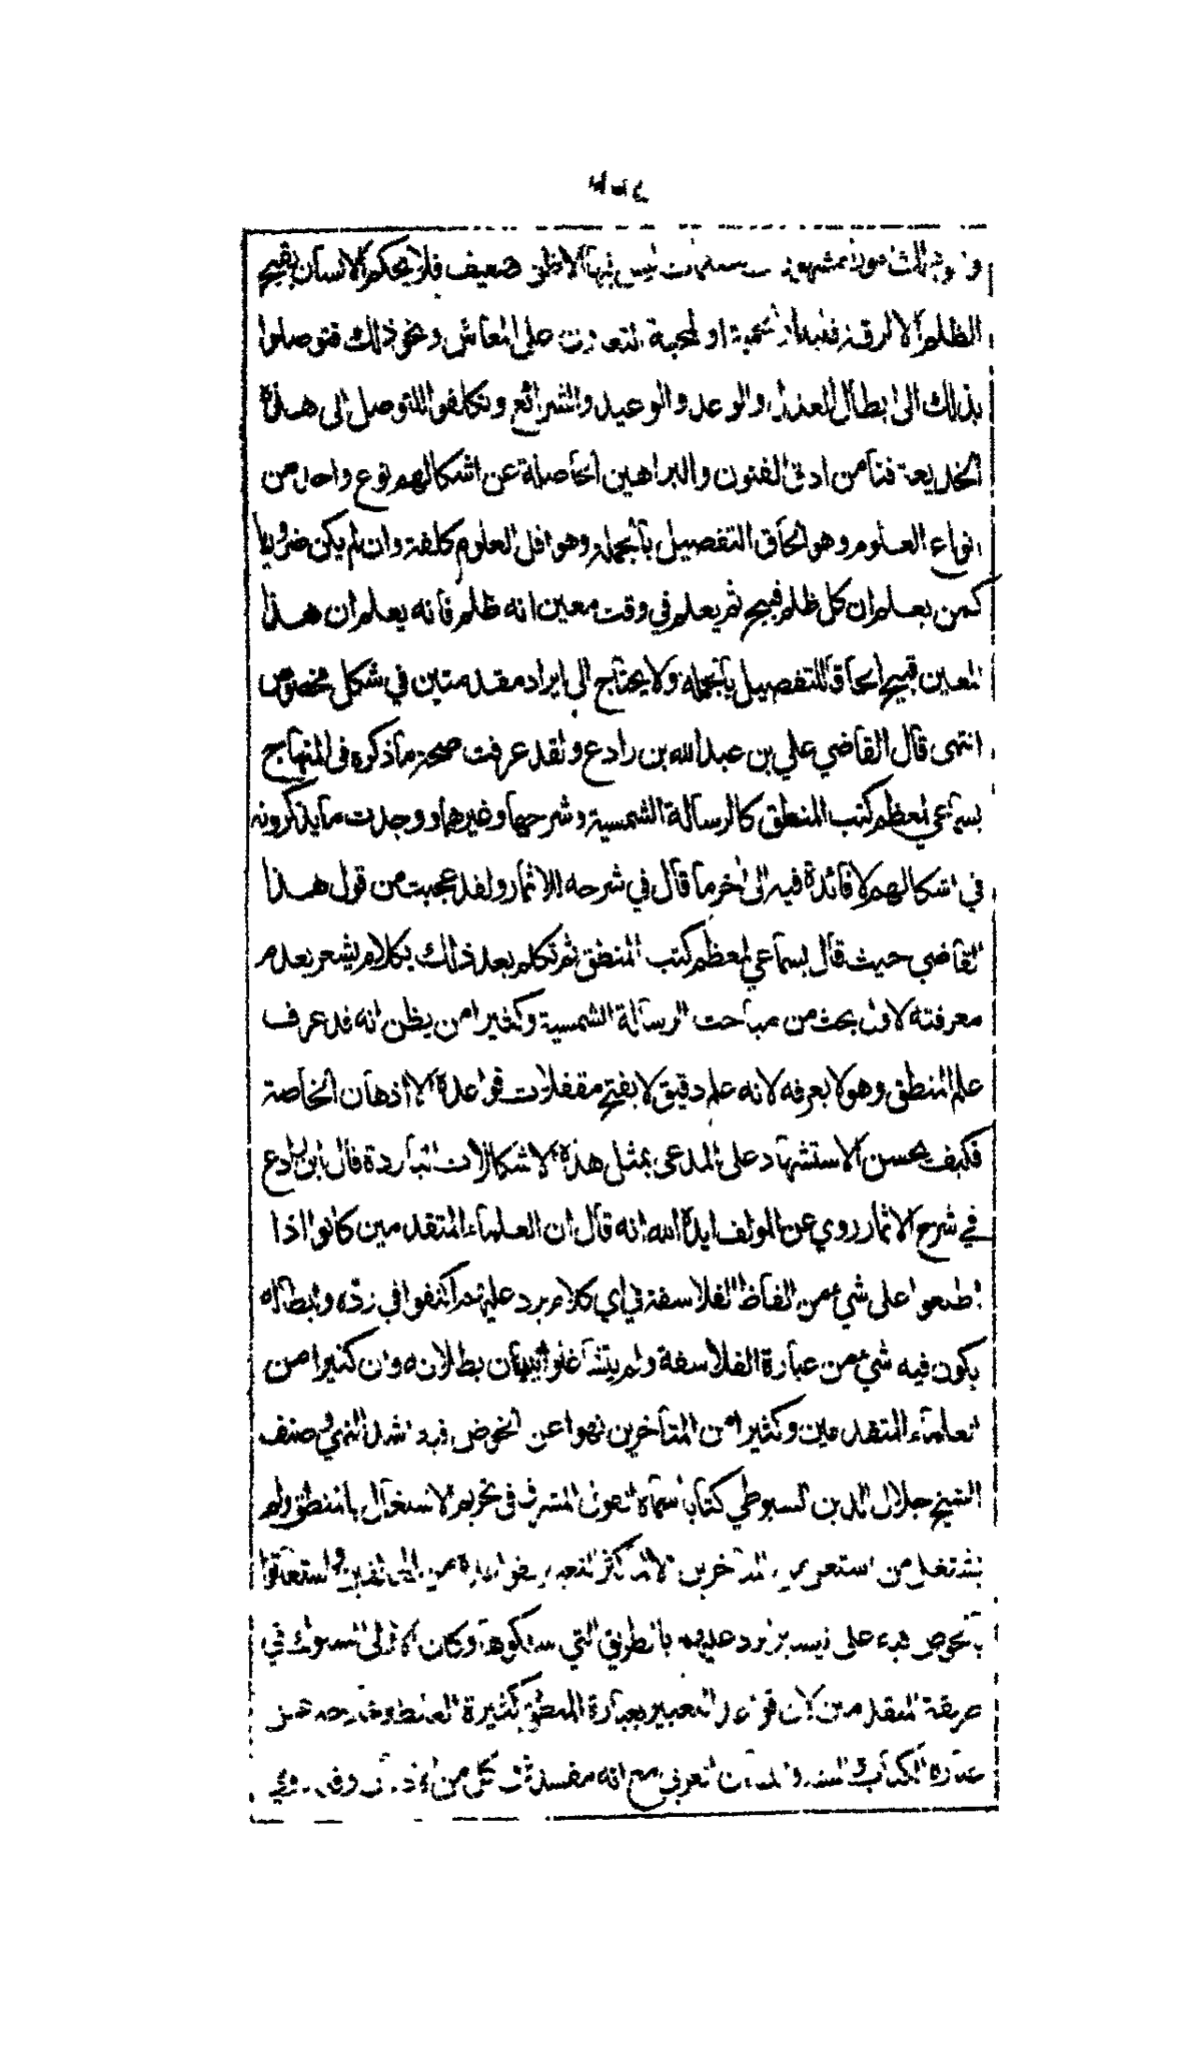 ليس فيها الا ظن ضعيف فلا يحكم الانسان بقبح
الظلم الا لرقة او لمحبة التعاون على المعاش ونحو ذلك فتوصلوا
بذلك الى ابطال العدل والوعد والوعيد والشرائع وتكلفوا للتوصل الى هذه
الخديعة فنا من ادق الفنون والبراهين الحاصلة عن اشكالهم نوع واحد من
انواع العلوم وهو الحاق التفصيل بالجملة وهو اقل العلوم كلفة وان لم يكن ضروريا
كمن يعلم ان كل ظلم قبيح ثم يعلم في وقت معين انه ظلم فانه يعلم ان هذا
المعين قبيح الحاقا للتفصيل بالجملة ولا يحتاج الى ايراد مقدمتين في شكل مخصوص
انتهى قال القاضي علي بن عبد الله بن رادع ولقد عرفت صحة ما ذكره في المنهاج
بسماعي لمعظم كتب المنطق كالرسالة الشمسية وشرحها وغيرهما ووجدت ما يذكرونه
في اشكالهم لا فائدة فيه الى اخر ما قال في شرحه للاثمار ولقد عجبت من قول هذا
القاضي حيث قال بسماعي لمعظم كتب المنطق ثم تكلم بعد ذلك بكلام يشعر بعدم
معرفته لاول بحث من مباحث الرسالة الشمسية وكثيرا من يظن انه قد عرف
علم المنطق وهو لا يعرفه لانه علم دقيق لا يفتح مقفلات قواعده الا اذهان الخاصة
فكيف يحسن الاستشهاد على المدعي بمثل هذه الاشكالات الباردة قال ابن رادع
في شرح الاثمار روي عن المولف ايده الله انه قال ان العلماء المتقدمين كانوا اذا
اطلعوا على شيء من الفاظ الفلاسفة في اي كلام يرد عليهم اكتفوا في رده وابطاله
بكون فيه شيء من عبارة الفلاسفة ولم يتشاغلوا ببيان بطلانه وان كثيرا من
العلماء المتقدمين وكثيرا من المتأخرين نهوا عن الخوض فيه اشد النهي وصنف
الشيخ جلال الدين السيوطي كتابا سماه القول المشرق في تحريم الاشتغال بالمنطق ولم
يشتغل من المتأخرين الا لما كثر التعبير من المخالفين واستعانوا
بالخوض فيه على الرد عليهم بالطريق التي سلكوها وكان الاولى السلوك في
طريقة المتقدمين لان قواعد التعبير بعبارة المنطق كثيرة الغلط
الكتاب والسنة واللسان العربي مع انه مفسدة